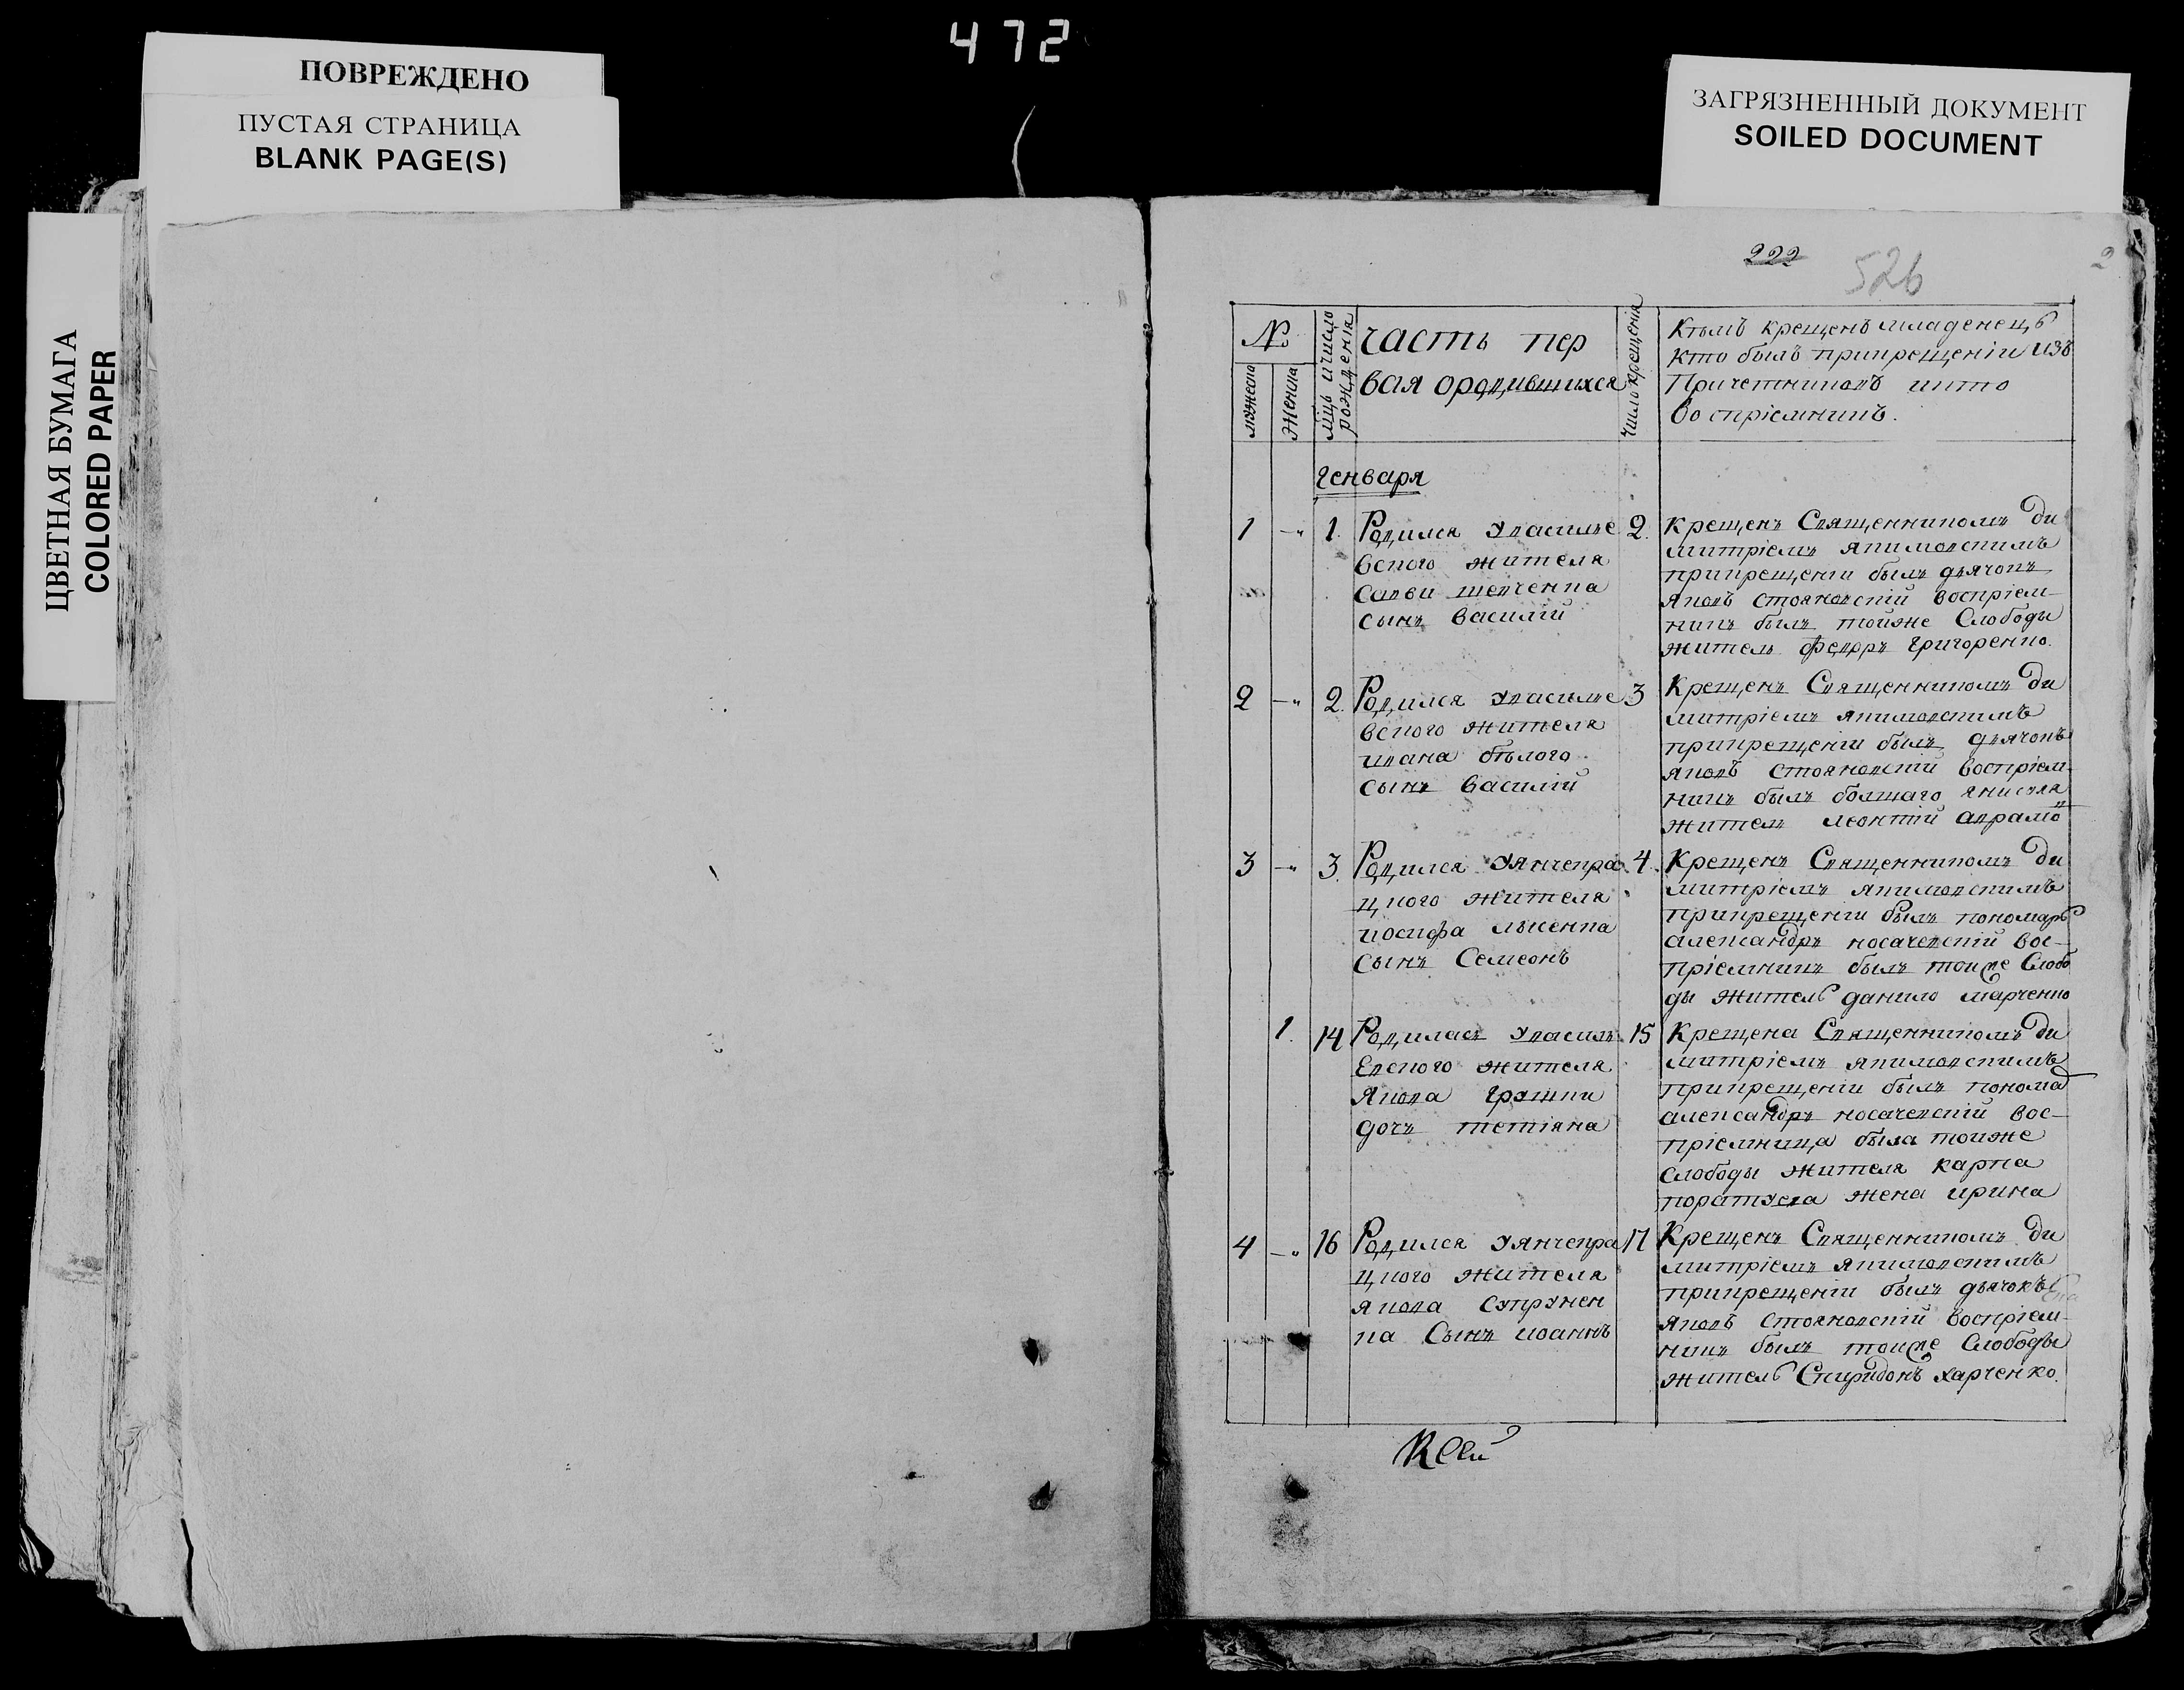 472
ПОВРЕЖДЕНО
ПУСТАЯ СТРАНИЦА
BLANK PAGE(S)
ЦВЕТНАЯ БУМАГА
COLORED PAPER
ЗАГРЯЗНЕННЫЙ ДОКУМЕНТ
SOILED DOCUMENT
222
526
2
№
мужеска
женска
мцъ и число рожденія
часть пер
вая ородившихся
число крещенія
Кѣмъ крещенъ младенецъ
кто былъ прикрещеніи изъ
Причетниковъ икто
воспріемникъ.
Генваря
1 1. Родился увасилье 2.
вского жителя
Савви шевченка
сынъ василій
Крещенъ Священникомъ Ди
митріемъ якимовскимъ
прикрещеніи былъ дьячокъ
яковъ стояновскій воспріем-
никъ былъ тойже Слободы
житель федоръ григоренко.
2 2. Родился увасилье 3
вского жителя
ивана бѣлого
сынъ василій
Крещенъ Священникомъ Ди
митріемъ якимовскимъ
прикрещеніи былъ дьячокъ
яковъ стояновскій воспріем-
никъ былъ болшаго янисоля
житель леонтій аврамо
3 3. Родился уянчепра 4.
цкого жителя
иосифа лысенка
Сынъ Семеонъ
Крещенъ Священникомъ Ди
митріемъ якимовскимъ
прикрещеніи былъ пономарь
александръ носачевскій вос-
пріемникъ былъ тойже Слобо
ды житель данило марченко
1. 14 Родилась увасиль 15
Евского жителя
Якова грушки
дочъ тетіяна
Крещена Священникомъ Ди
митріемъ якимовскимъ
прикрещеніи былъ понома
александръ носачевскій вос-
пріемница была тойже
Слободы жителя карпа
жена ирина
4 16 Родился уянчепра 17
цкого жителя
якова Супрунен
ка Сынъ иоаннъ
Крещенъ Священникомъ Ди
митріемъ якимовскимъ
прикрещеніи былъ дьячокъ
яковъ стояновскій воспріем-
никъ былъ тойже Слободы
житель Спиридонъ харченко.